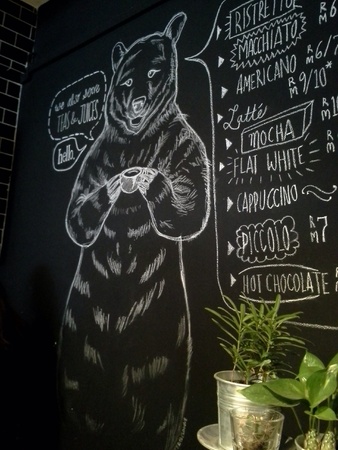 we also serve
TEAS & JUICES
hello.
RISTRETTO
RM
MACCHIATO
RM 6/7
AMERICANO RM 9/10*
Latté RM
MOCHA RM
FLAT WHITE
CAPPUCCINO
PICCOLO RM 7
HOT CHOCOLATE RM